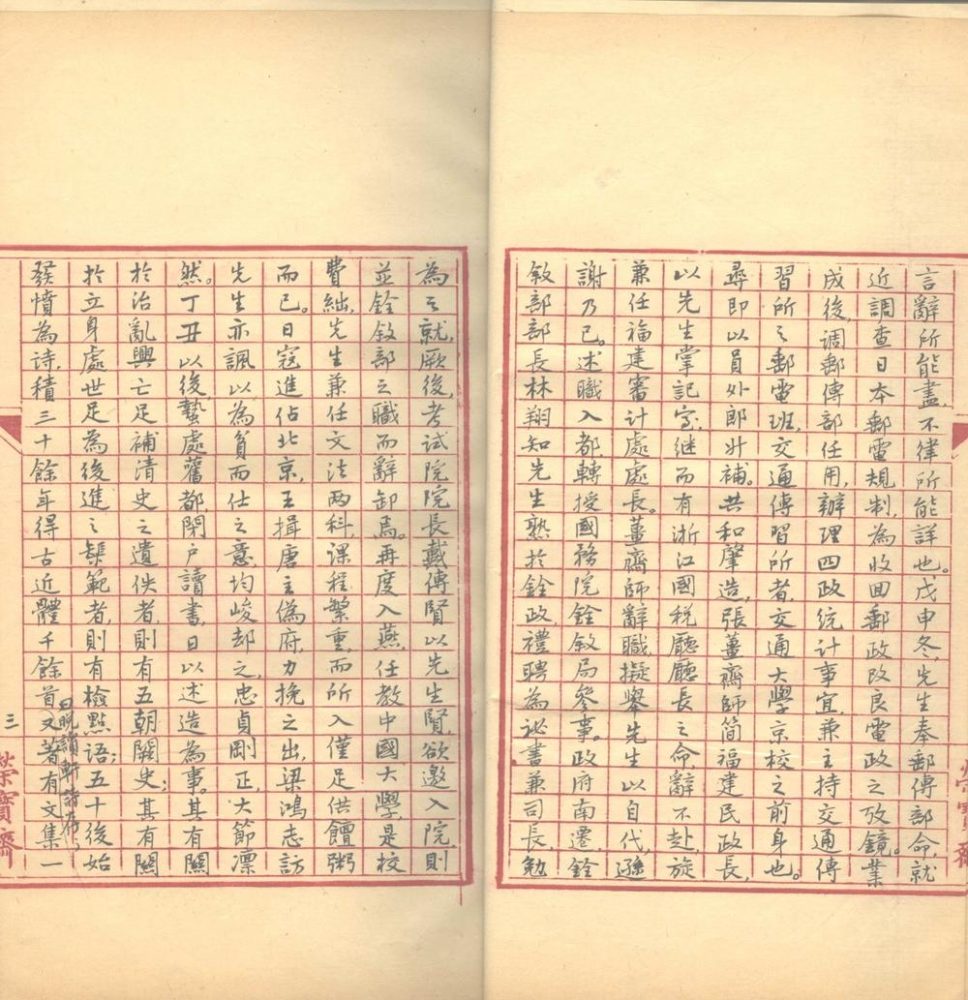 言辭所能盡,不律所能詳也。戊申冬,先生奉郵傳部命,就
近調查日本郵電規制,為收回郵政改良電政之攷鏡。業
成後,調郵傳部任用,辦理四政統計事宜,兼主持交通傳
習所之郵電班,交通傳習所者,交通大學京校之前身也。
尋即以員外郎升補。共和肇造,張薑齋師簡福建民政長,
以先生掌記室,继而有浙江國稅廳廳長之命,辭不赴,旋
兼任福建審計處處長。薑齋師辭職,擬舉先生以自代,遜
謝乃已。述職入都,轉授國務院銓敘局參事。政府南遷,銓
敘部部長林翔知先生熟於銓政,禮聘為祕書兼司長,勉
為之就,厥後,考試院院長戴傳賢以先生賢,欲邀入院,則
並銓敘部之職而辭卸焉。再度入燕,任教中國大學,是校
費絀,先生兼任文法兩科,課程繁重,而所入僅足供饘粥
而已。日寇進佔北京,王揖唐主偽府,力挽之出,梁鴻志訪
先生亦諷以為貧而仕之意,均峻却之,忠貞剛正,大節凛
然。丁丑以後,蟄處舊都,閉戶讀書,日以述造為事。其有關
於治亂興亡足補清史之遺佚者,則有五朝闕史;其有關
於立身處世足為後進之榘範者,則有檢點語;五十後始
發憤為詩,積三十餘年得古近體千餘首又著有文集一
曰晚讀軒詩存
三
榮寶齋
榮寶齋